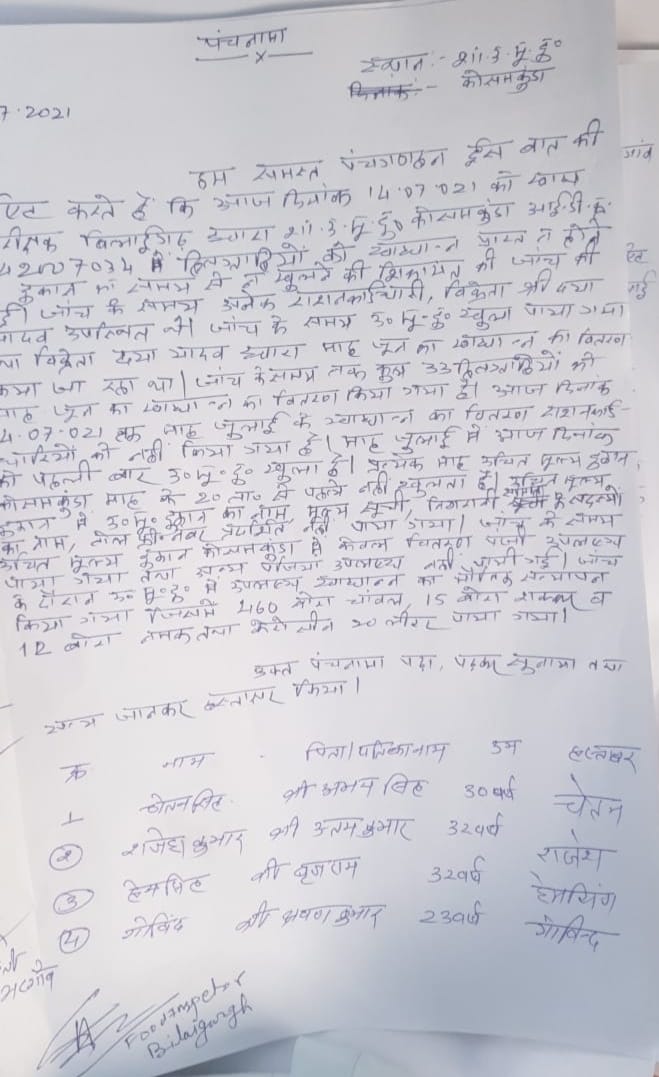 पंचनामा
x
स्थान:- शा.उ.मू.दु०
दिनांक:- कोसमकुंडा
7.2021
हम समस्त पंचगणठन इस बात की
करते है कि आज दिनांक 14.07.021 को खाद्य
बिलाईगढ़ द्वारा शा.उ.मू.दु० कोसमकुंडा आई.डी.क्र.
42007034 में हितग्राहियों को खाद्यान्न प्राप्त न होने
दुकान को समय से न खुलने की शिकायत की जांच की
जांच के समय अनेक राशनकार्डधारी, विक्रेता श्री दया
यादव उपस्थित थे। जांच के समय उ०मू०दु० खुला पाया गया
विक्रेता दया यादव द्वारा माह जून का खाद्यान्न का वितरण
किया जा रहा था। जांच के समय तक कुल 33 हितग्राहियों को
माह जून का खाद्यान्न का वितरण किया गया है। आज दिनांक
14.07.021 तक माह जुलाई के खाद्यान्न का वितरण राशनकार्ड-
धारियों को नहीं किया गया है। माह जुलाई में आज दिनांक
को पहली बार उ०मू०दु० खुला है। प्रत्येक माह उचित मूल्य दुकान
कोसमकुंडा माह के 20 ता० से पहले नहीं खुलता है। उचित मूल्य
दुकान में उ०मू० दुकान का नाम, मूल्य सूची, निगरानी समिति के सदस्यों
का नाम, टोल फ्री नंबर प्रदर्शित नहीं पाया गया। जांच के समय
उचित मूल्य दुकान कोसमकुंडा में केवल वितरण पंजी उपलब्ध
पाया गया तथा अन्य पंजियां उपलब्ध नहीं पायी गई। जांच
के दौरान उ०मू०दु० में उपलब्ध खाद्यान्न का भौतिक सत्यापन
किया गया जिसमें 460 बोरा चांवल, 15 बोरा शक्कर व
12 बोरा नमक तथा केरोसीन 20 लीटर पाया गया।
उक्त पंचनामा पढ़ा, पढ़कर सुनाया तथा
सत्य जानकर हस्ताक्षर किया।
क्र नाम पिता/पतिकानाम उम्र हस्ताक्षर
1 चेतनसिंह श्री अभय सिंह 30वर्ष चेतन
2 राजेश कुमार श्री उत्तम कुमार 32वर्ष राजेश
3 हेमसिंह श्री बृजराम 32वर्ष हेमसिंग
4 गोविंद श्री श्रवण कुमार 23वर्ष गोविन्द
Food Inspector
Bilaigarh